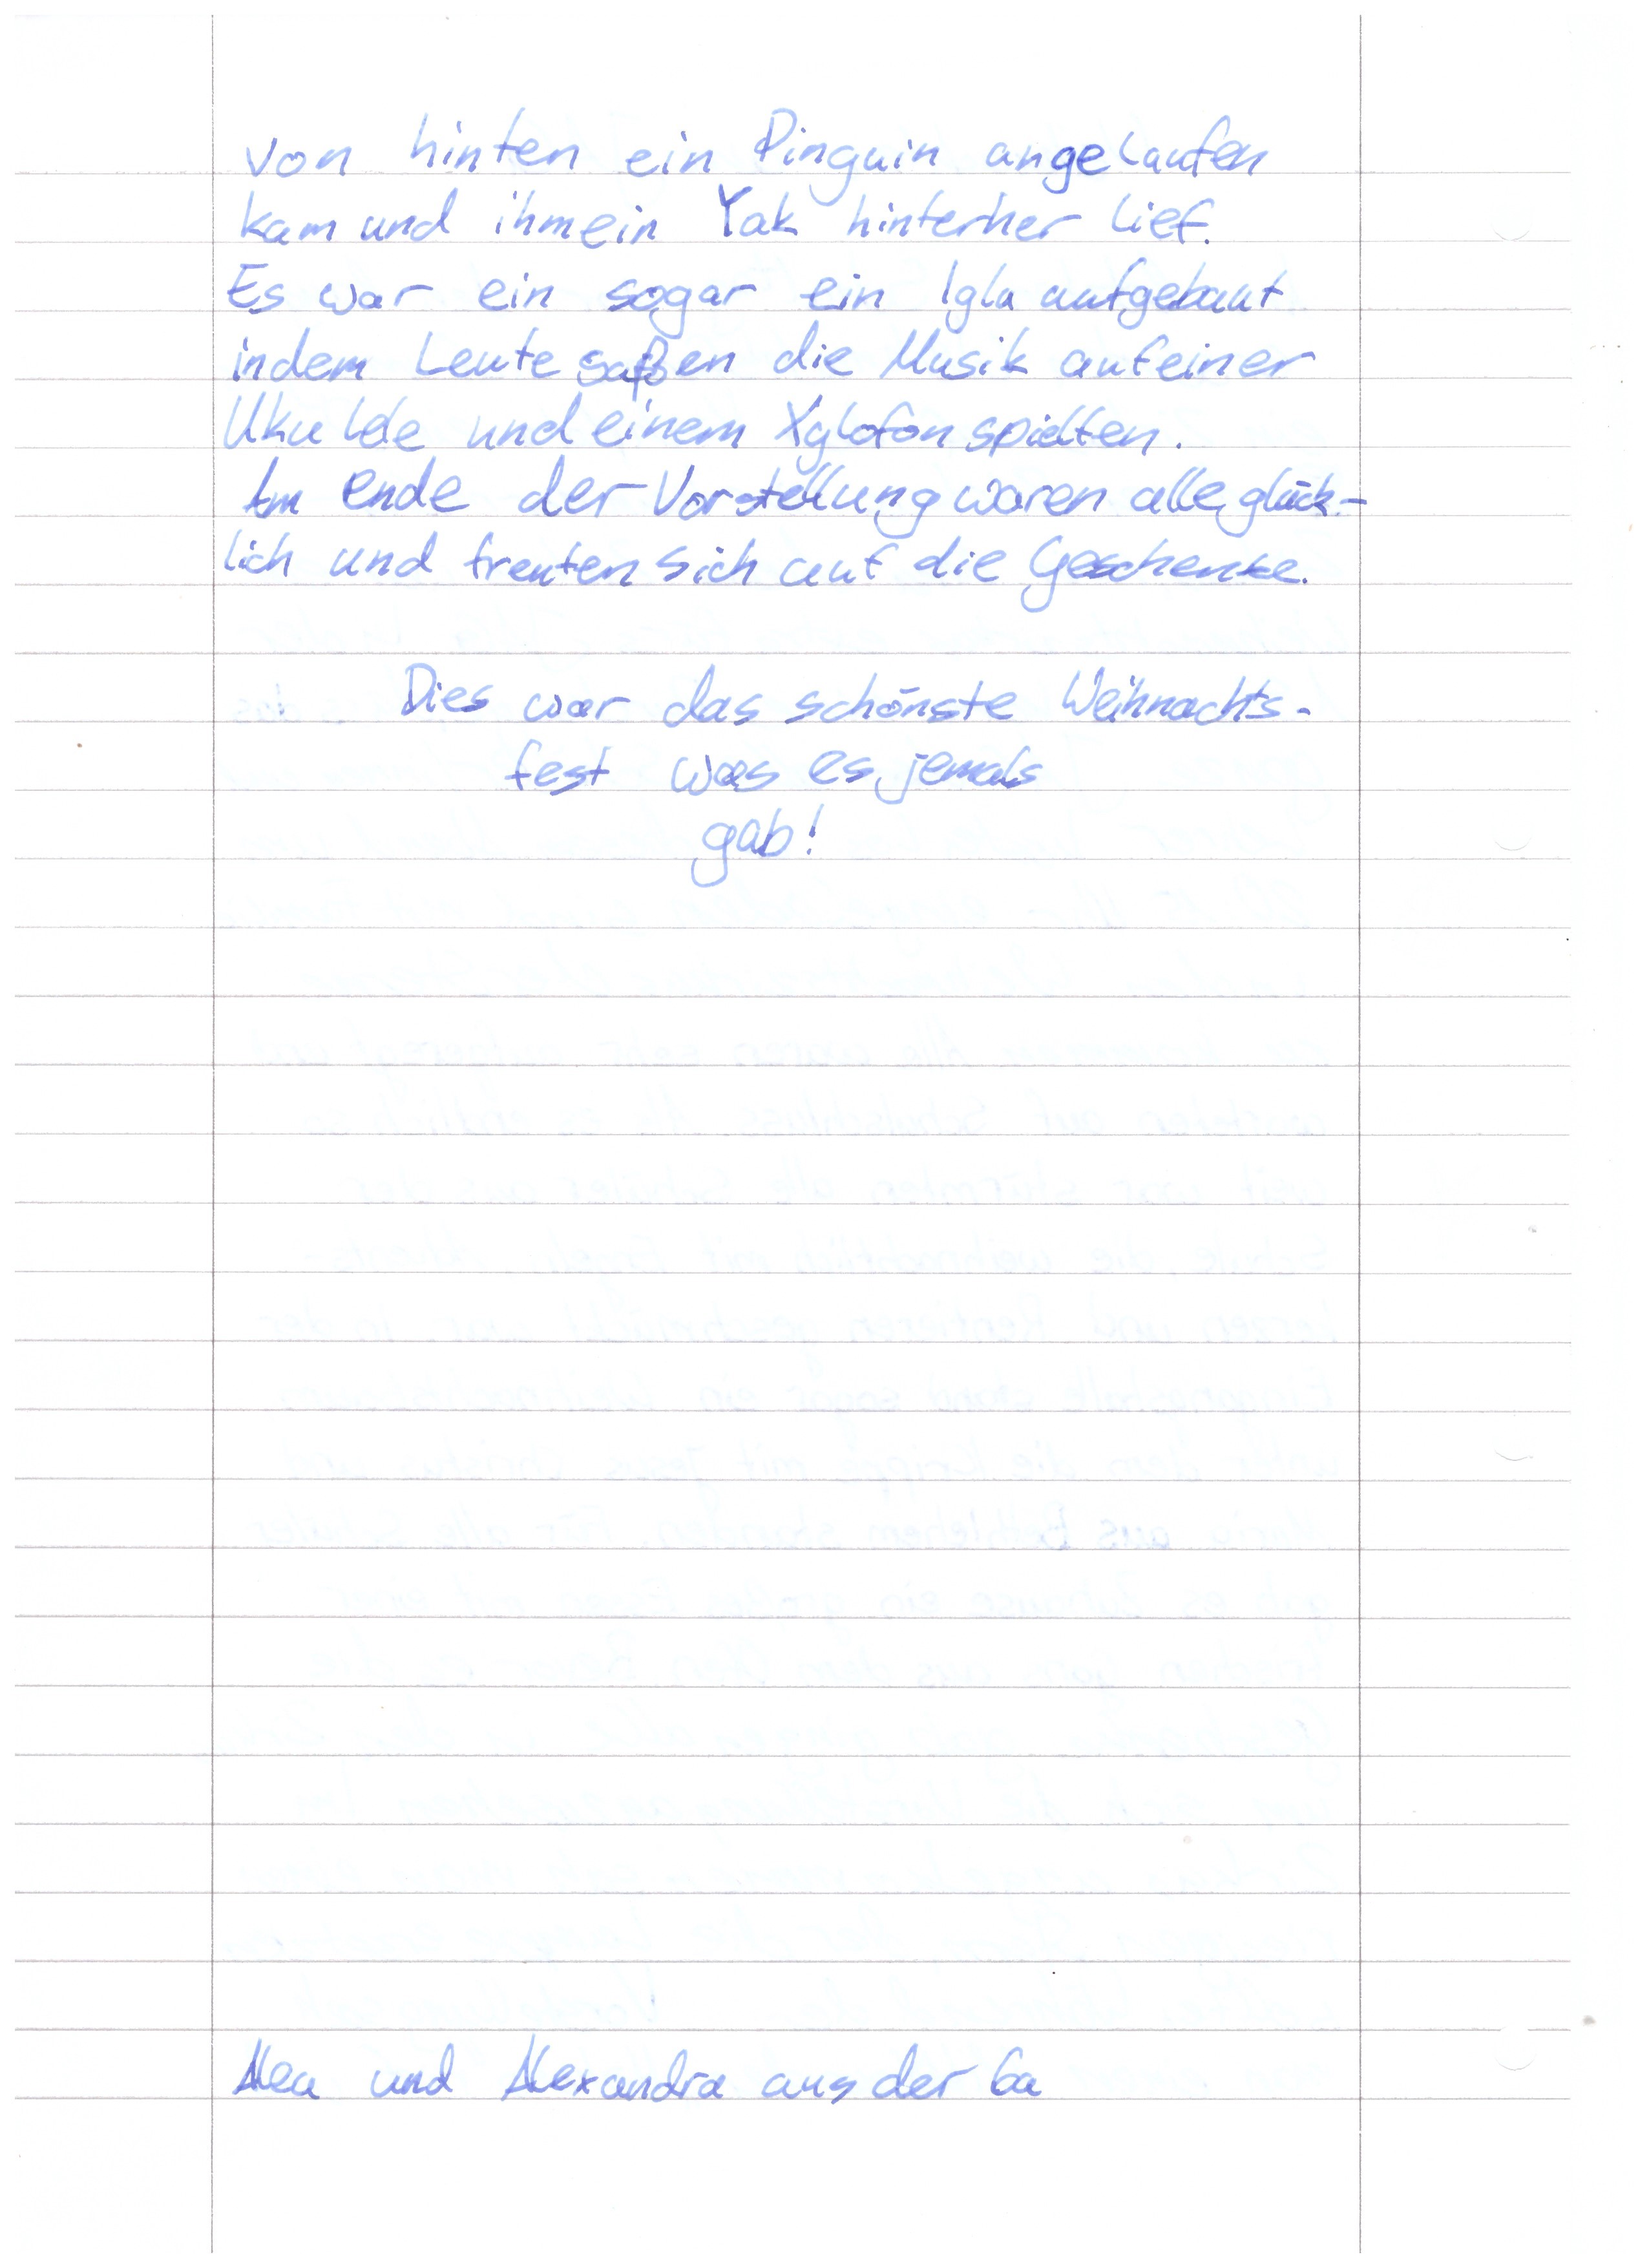 von hinten ein Pinguin angelaufen
kam und ihm ein Yak hinterher lief.
Es war ein sogar ein Iglu aufgebaut
indem Leute saßen die Musik auf einer
Ukulele und einem Xylofon spielten.
Am ende der Vorstellung waren alle glück-
lich und freuten sich auf die Geschenke.
Dies war das schönste Weihnachts-
fest was es jemals
gab!
Alea und Alexandra aus der 6a